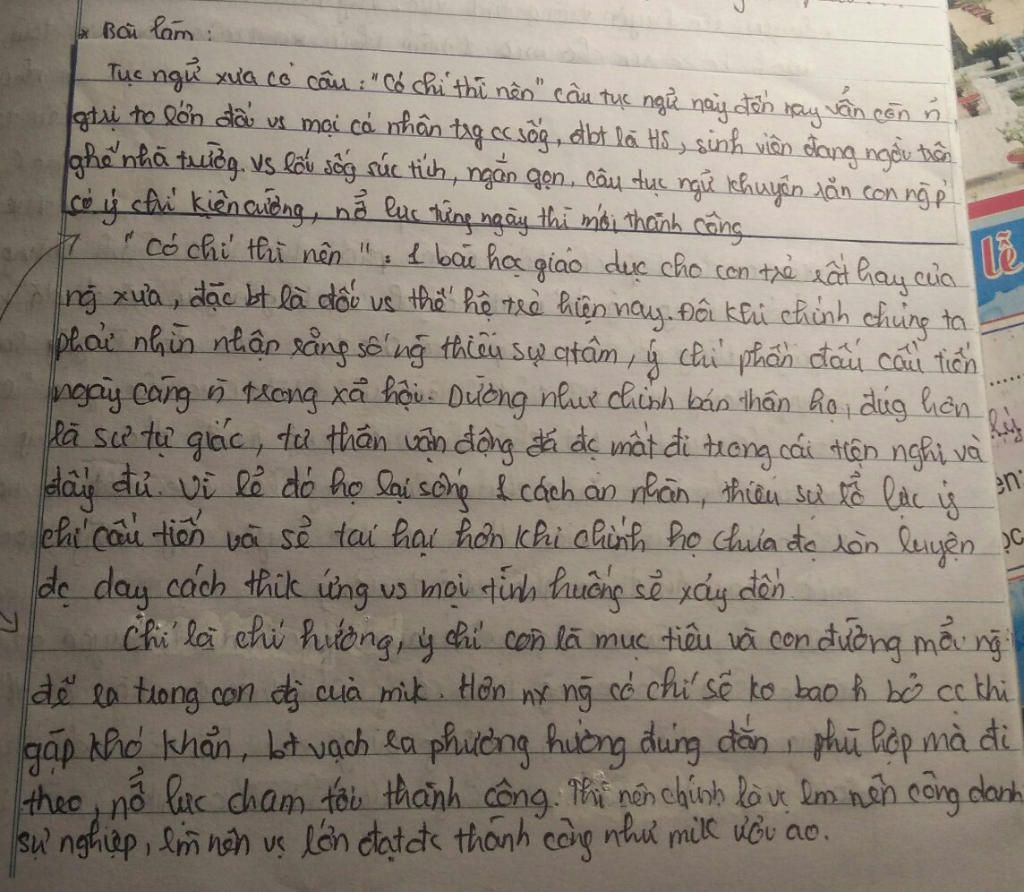 * Bài làm:
Tục ngữ xưa có câu: "Có chí thì nên" câu tục ngữ này đến nay vẫn còn n
gtrị to lớn đối vs mọi cá nhân trg cc sốg, đbt là HS, sinh viên đang ngồi trên
ghế nhà trường. vs lối sốg súc tích, ngắn gọn, câu tục ngữ khuyên răn con ng p
có ý chí kiên cường, nổ lực từng ngày thì mới thành công
"Có chí thì nên": 1 bài học giáo dục cho con trẻ rất hay của
ng xưa, đặc bt là đối vs thế hệ trẻ hiện nay. Đôi khi chính chúng ta
phải nhìn nhận rằng số ng thiếu sự qtâm, ý chí phấn đấu cầu tiến
ngày càng n trong xã hội. Dường như chính bản thân họ, đúg hơn
là sự tự giác, tự thân vận động đã đc mất đi trong cái tiện nghi và
đầy đủ. Vì lẻ đó họ lại sống 1 cách an nhàn, thiếu sự lổ lực ý
chí cầu tiến và sẻ tai hại hơn khi chính họ chưa đc rèn luyện
đc dạy cách thik ứng vs mọi tình huống sẻ xảy đến.
Chí là chí hướng, ý chí còn là mục tiêu và con đường mổi ng
đề ra trong con đg của mik. Hơn nx ng có chí sẽ ko bao h bỏ cc khi
gặp khó khăn, bt vạch ra phương hướng đúng đắn, phù hợp mà đi
theo, nổ lực chạm tới thành công. Thì nên chính là vc lm nên công danh
sự nghiệp, lm nên vc lớn đạt đc thành công như mik ước ao.
lễ